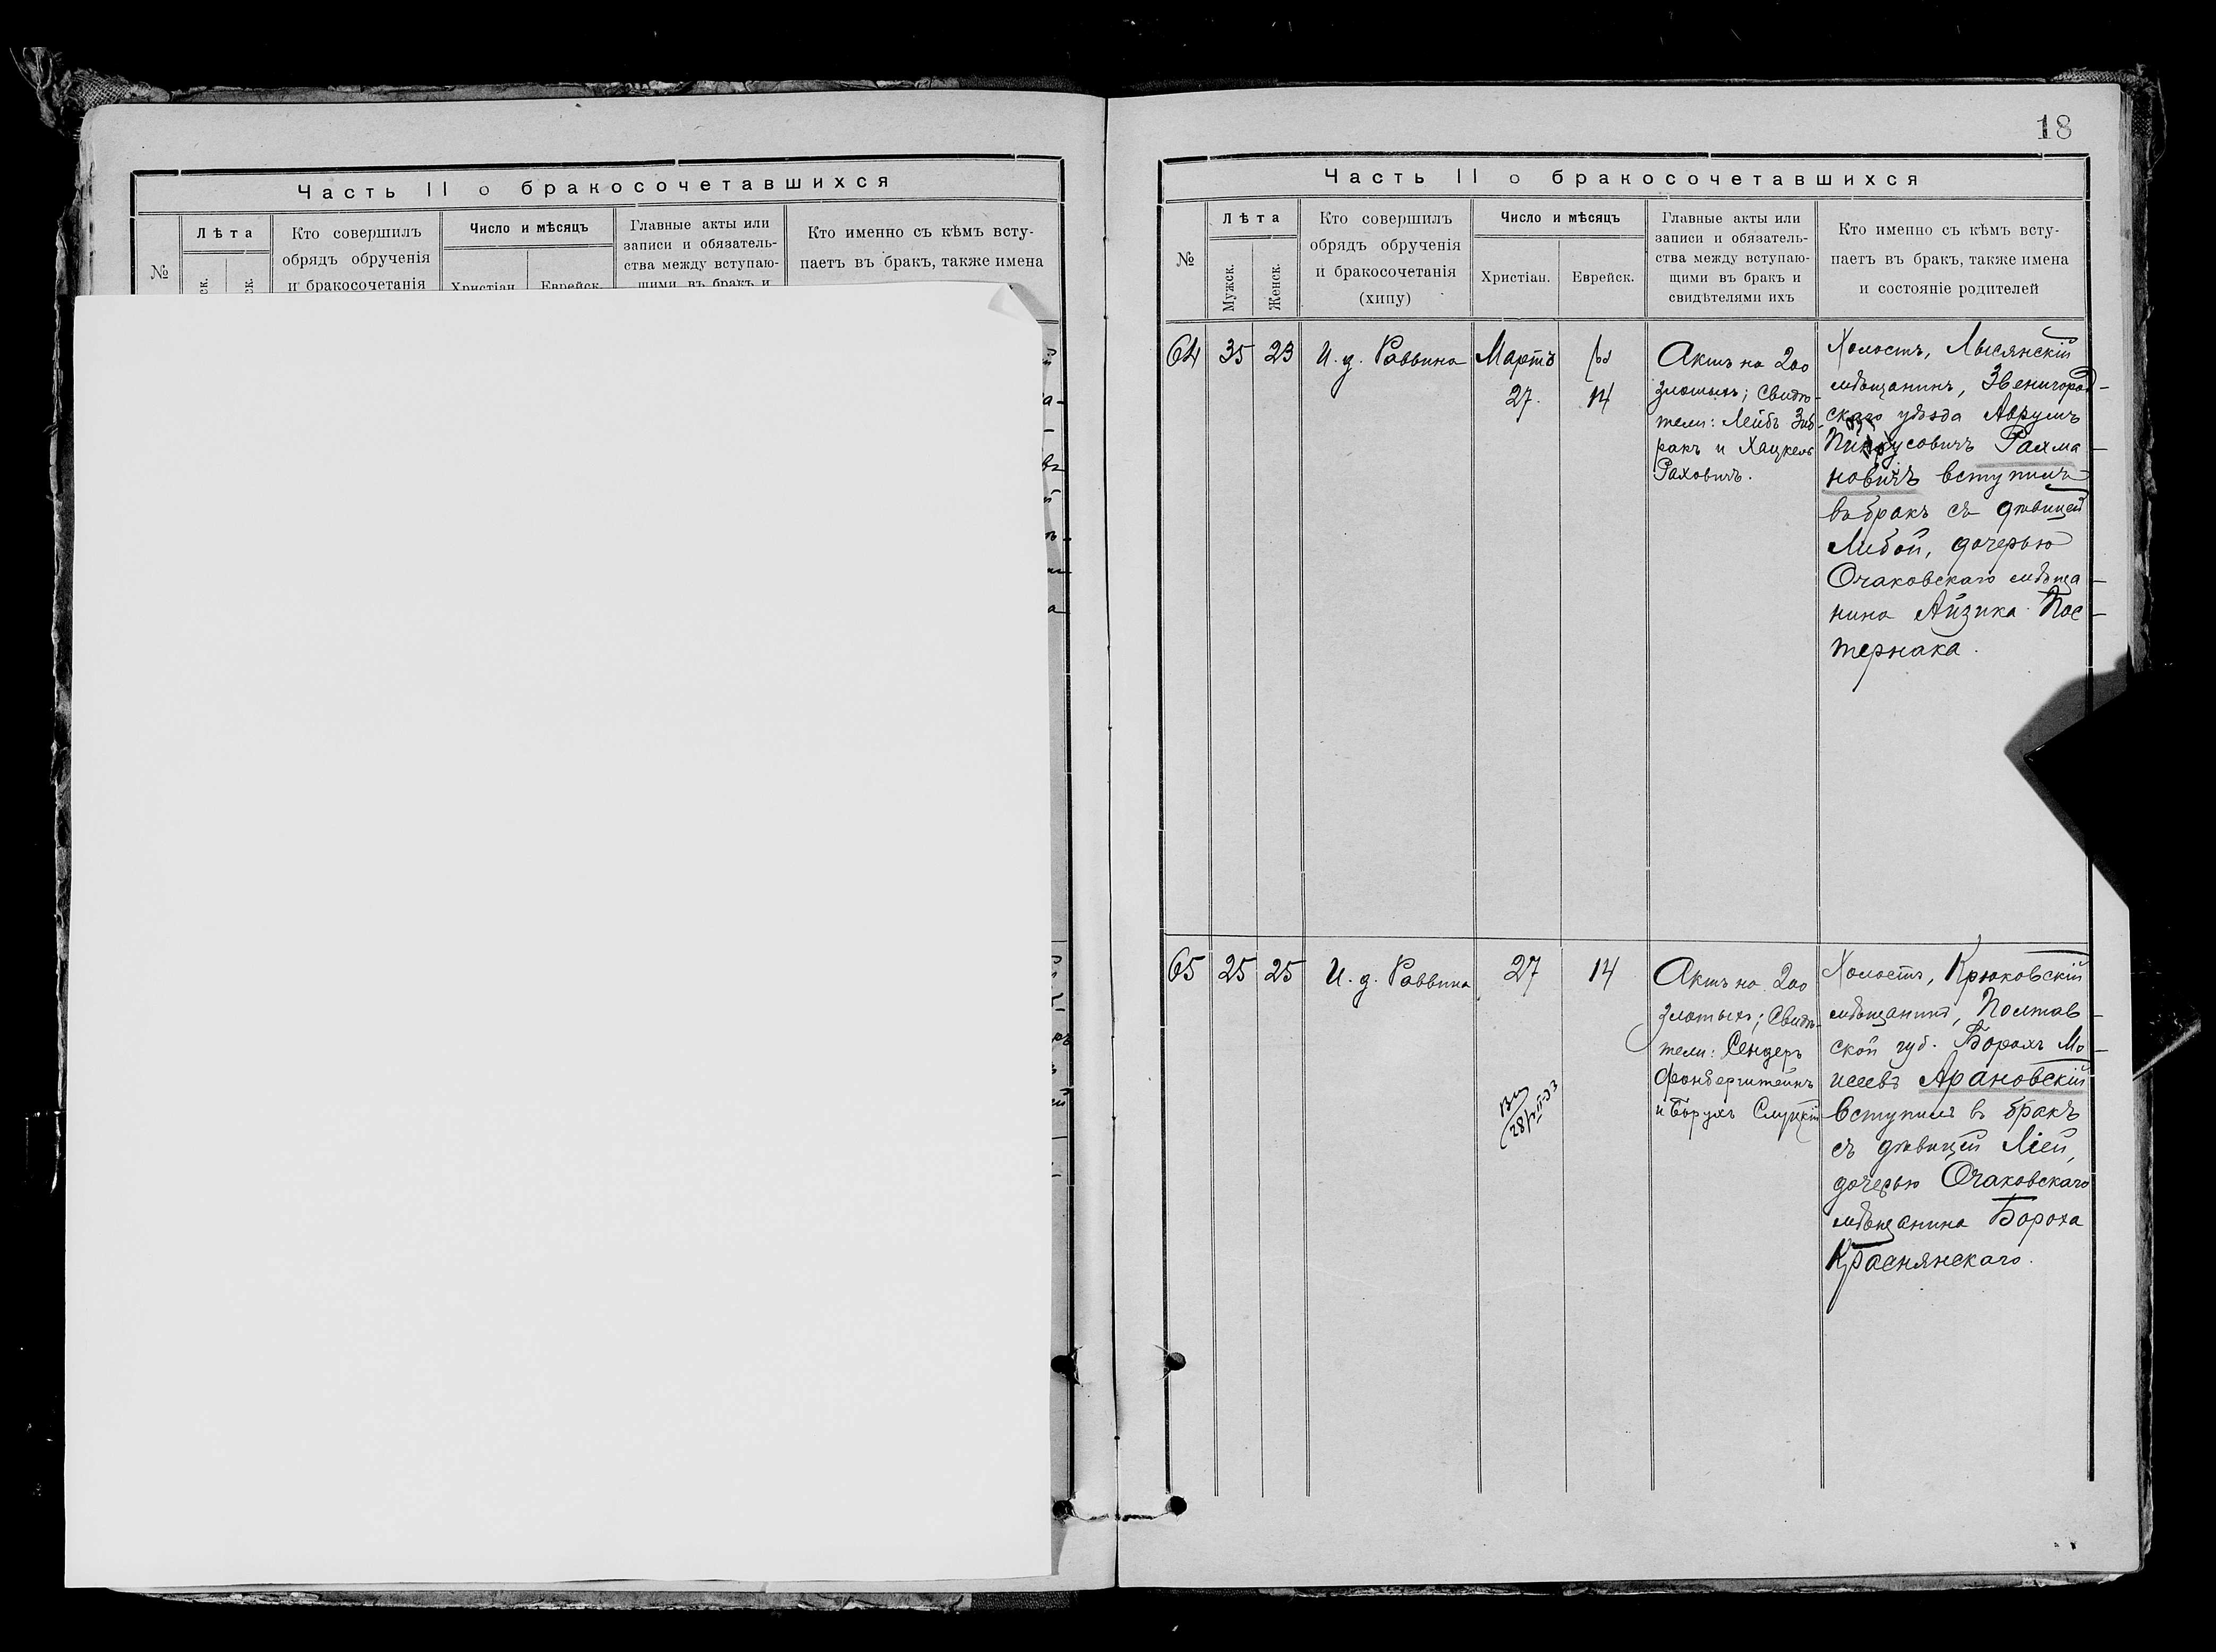 Часть II о бракосочетавшихся
№
Лѣта
ск.
ск.
Кто совершилъ
обрядъ обрученія
и бракосочетанія
Число и мѣсяцъ
Христіан.
Еврейск.
Главные акты или
записи и обязатель-
ства между вступаю-
щими въ бракъ и
Кто именно съ кѣмъ всту-
паетъ въ бракъ, также имена
18
Часть II о бракосочетавшихся
№
Лѣта
Мужск.
Женск.
Кто совершилъ
обрядъ обрученія
и бракосочетанія
(хипу)
Число и мѣсяцъ
Христіан.
Еврейск.
Главные акты или
записи и обязатель-
ства между вступаю-
щими въ бракъ и
свидѣтелями ихъ
Кто именно съ кѣмъ всту-
паетъ въ бракъ, также имена
и состояніе родителей
64
35
23
И. д. Раввина
Мартъ
27.
14
Актъ на 200
злотыхъ; Свидѣ-
тели: Лейбъ
и Хацкель
Раховичъ.
Холостъ, Лысянскій
мѣщанинъ, Звенигород-
скаго уѣзда Аврумъ
Рахма-
новичъ вступилъ
въ бракъ съ дѣвицей
Либой, дочерью
Очаковскаго мѣща-
нина Айзика Пас-
тернака.
65
25
25
И. д. Раввина
27
14
Актъ на 200
злотыхъ; Свидѣ-
тели: Сендеръ
Фонберштейнъ
и Борухъ Слуцкій
Холостъ, Крюковскій
мѣщанинъ, Полтав-
ской губ. Борохъ Мо-
исеевъ Арановскій
вступилъ в бракъ
съ дѣвицей Ліей,
дочерью Очаковскаго
мѣщанина Бороха
Краснянскаго.